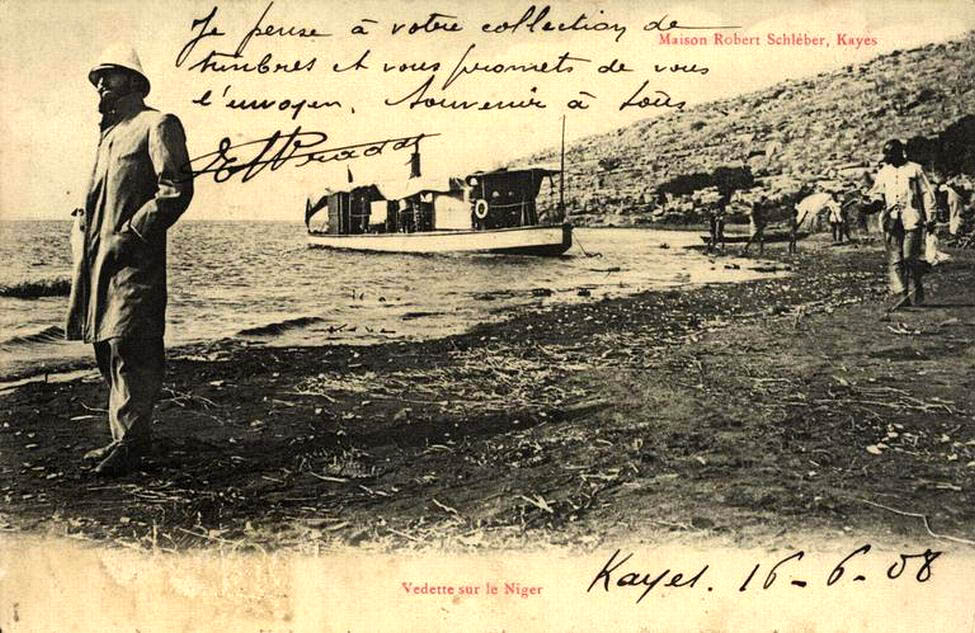 Je pense à votre collection de
Maison Robert Schléber, Kayes
timbres et vous promets de vous
l'envoyer. Souvenir à tous
Vedette sur le Niger
Kayes. 16-6-08